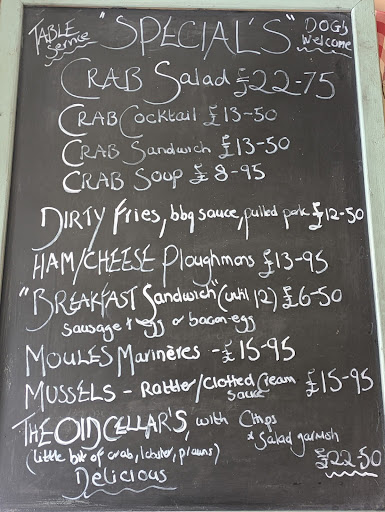 TABLE Service "SPECIAL'S" DOG's Welcome
CRAB Salad £22-75
CRAB Cocktail £13-50
CRAB Sandwich £13-50
CRAB Soup £8-95
DIRTY fries, bbq sauce, pulled pork £12-50
HAM/CHEESE Ploughmans £13-95
"BREAKFAST Sandwich" (until 12) £6-50
Sausage + egg or bacon-egg
MOULES Marinères - £15-95
MUSSELS - Rattler/Clotted Cream sauce £15-95
THE OLD CELLAR'S, with Chips
* Salad garnish
(little bit of crab, lobster, prawns) £22-50
Delicious